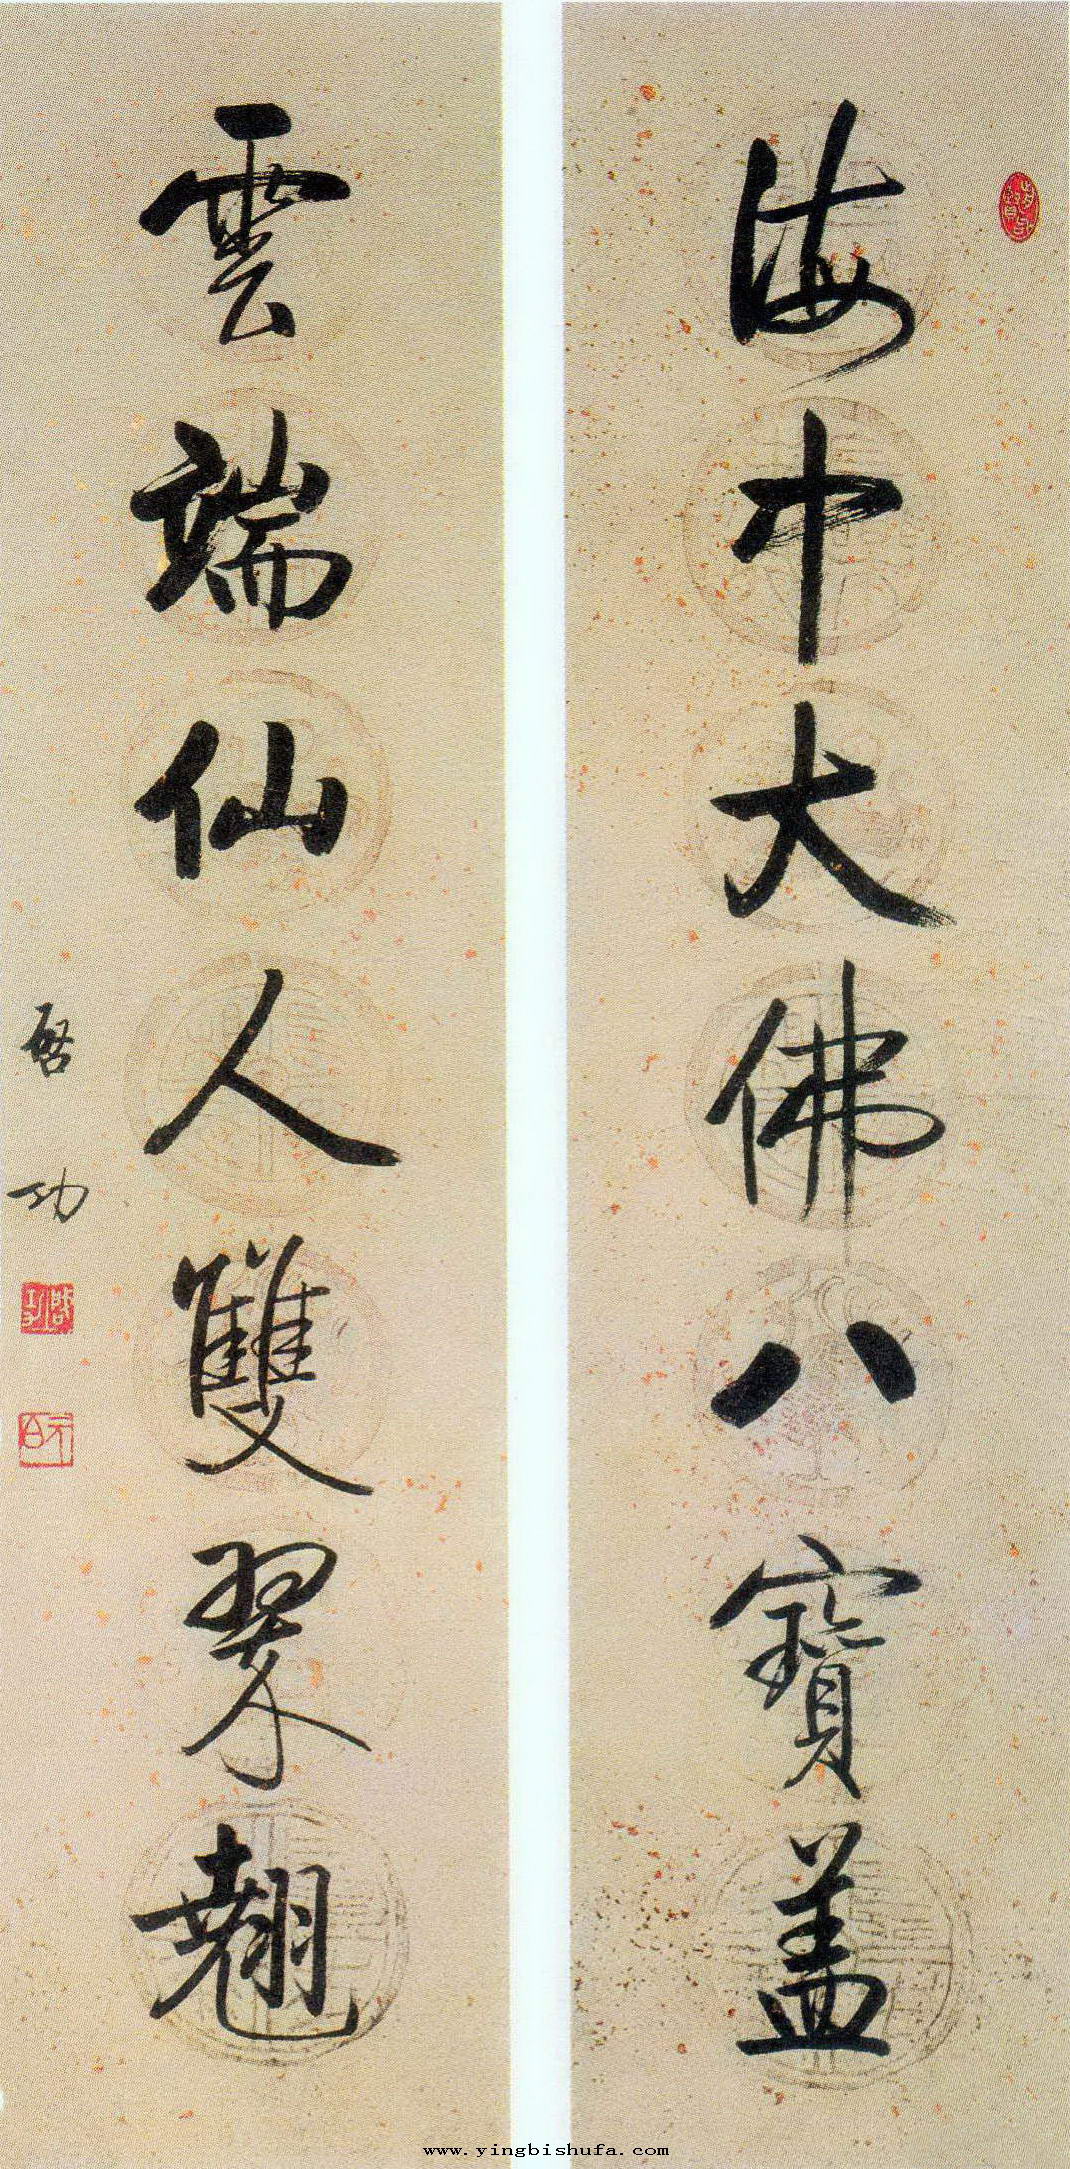 海中大佛八寶盖
雲端仙人雙翠翹
啓功
www.yingbishufa.com